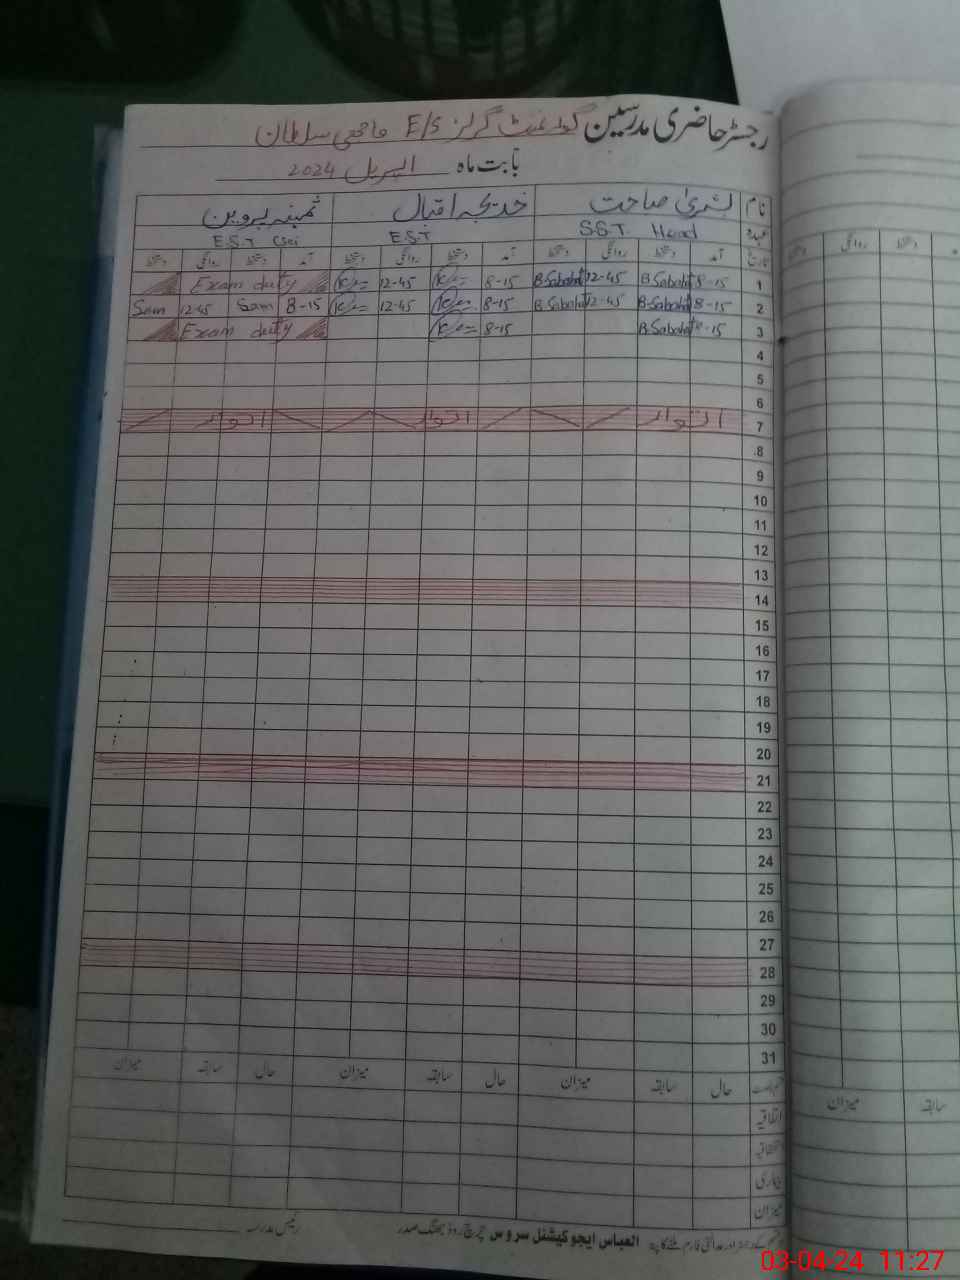 رجسٹر حاضری مدرسین گورنمنٹ گرلز E/S سلطان
بابت ماہ اپریل 2024
نام بشریٰ صباحت خدیجہ اقبال ثمینہ پروین
عہدہ S.S.T. Head E.S.T E.S.T
تاریخ آمد دستخط روانگی دستخط آمد دستخط روانگی دستخط آمد دستخط روانگی دستخط
1 8-15 B Sabahat 12-45 B Sabahat 8-15 12-45 Exam duty
2 8-15 B Sabahat 12-45 B Sabahat 8-15 12-45 8-15 Sam 12-45 Sam
3 8-15 B Sabahat 8-15 Exam duty
4
5
6
7 اتوار اتوار اتوار
8
9
10
11
12
13
14
15
16
17
18
19
20
21
22
23
24
25
26
27
28
29
30
31
حال سابقہ میزان حال سابقہ میزان حال سابقہ میزان
اتفاقیہ
بیماری
میزان
العباس ایجوکیشنل سروس چرچ روڈ جھنگ صدر
رئیس مدرسہ
روانگی دستخط
میزان سابقہ
03-04-24 11:27